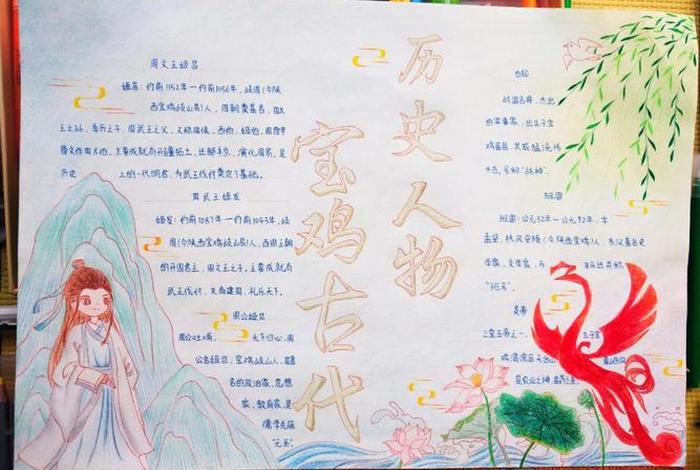 宝鸡古代
历史人物
周文王姬昌
姬昌：约前1152年一约前1056年，岐周(今陕
西宝鸡岐山县)人，周朝奠基者，周太
王之孙，季历之子，周武王之父，又称周侯，西伯，姬伯，周原甲
骨文作周方伯。主要成就有开疆拓土，迁都丰京，演化周易。是
历史 上的一代明君，为武王伐纣奠定了基础。
周武王姬发
姬发：约前1087年一约前1043年，岐
周(今陕西宝鸡岐山县)人，西周王朝
的开国君主，周文王之子。主要成就有
武王伐纣，灭商建周，礼乐天下。
周公姬旦
周公吐哺， 天下归心，周
公名姬旦，宝鸡岐山人，是著
名的政治家，思想
家，教育家，是
儒学先驱
"元圣"
白起
战国名将，杰出
的军事家，出生于宝
鸡眉县，其威猛
号称"战神"。
班固
班固：公元32年一公元92年，字
孟坚，扶风安陵(今陕西宝鸡)人，东汉著名史
学家，文学家，与
"班马"。
炎帝
之皇五帝之一，
鸡渭滨区天台山
是农业之神